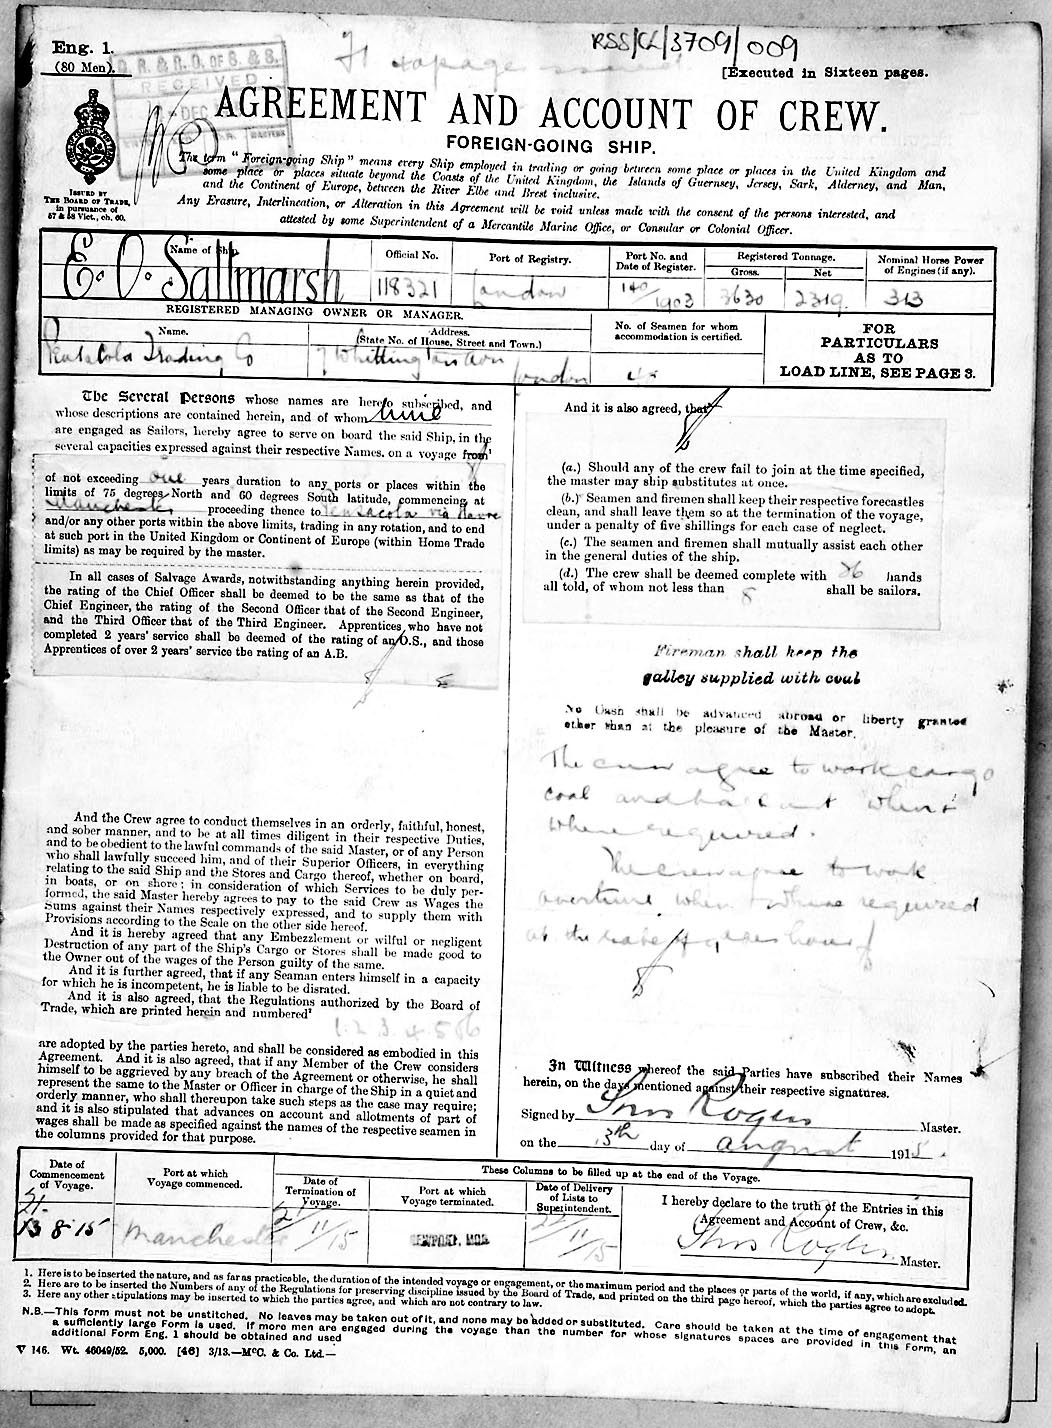 Eng. 1.
(80 Men).
RSS/CL/3709/009
[Executed in Sixteen pages.
RECEIVED
DEC
AGREEMENT AND ACCOUNT OF CREW.
FOREIGN-GOING SHIP.
ISSUED BY
THE BOARD OF TRADE,
in pursuance of
57 & 58 Vict., ch. 60.
The term "Foreign-going Ship" means every Ship employed in trading or going between some place or places in the United Kingdom and
some place or places situate beyond the Coasts of the United Kingdom, the Islands of Guernsey, Jersey, Sark, Alderney, and Man,
and the Continent of Europe, between the River Elbe and Brest inclusive.
Any Erasure, Interlineation, or Alteration in this Agreement will be void unless made with the consent of the persons interested, and
attested by some Superintendent of a Mercantile Marine Office, or Consular or Colonial Officer.
Name of Ship.
Official No.
Port of Registry.
Port No. and
Date of Register.
Registered Tonnage.
Gross.
Net
Nominal Horse Power
of Engines (if any).
E. O. Saltmarsh
118321
London
140/1903
3630
2319
313
REGISTERED MANAGING OWNER OR MANAGER.
Name.
Address.
(State No. of House, Street and Town.)
No. of Seamen for whom
accommodation is certified.
FOR
PARTICULARS
AS TO
LOAD LINE, SEE PAGE 3.
Trading Co
7 Whittington Avn
London
The Several Persons whose names are hereto subscribed, and
whose descriptions are contained herein, and of whom nine
are engaged as Sailors, hereby agree to serve on board the said Ship, in the
several capacities expressed against their respective Names, on a voyage from¹
of not exceeding one years duration to any ports or places within the
limits of 75 degrees North and 60 degrees South latitude, commencing at
Manchester proceeding thence to Pensacola via Havre
and/or any other ports within the above limits, trading in any rotation, and to end
at such port in the United Kingdom or Continent of Europe (within Home Trade
limits) as may be required by the master.
In all cases of Salvage Awards, notwithstanding anything herein provided,
the rating of the Chief Officer shall be deemed to be the same as that of the
Chief Engineer, the rating of the Second Officer that of the Second Engineer,
and the Third Officer that of the Third Engineer. Apprentices who have not
completed 2 years' service shall be deemed of the rating of an O.S., and those
Apprentices of over 2 years' service the rating of an A.B.
And the Crew agree to conduct themselves in an orderly, faithful, honest,
and sober manner, and to be at all times diligent in their respective Duties,
and to be obedient to the lawful commands of the said Master, or of any Person
who shall lawfully succeed him, and of their Superior Officers, in everything
relating to the said Ship and the Stores and Cargo thereof, whether on board,
in boats, or on shore; in consideration of which Services to be duly per-
formed, the said Master hereby agrees to pay to the said Crew as Wages the
Sums against their Names respectively expressed, and to supply them with
Provisions according to the Scale on the other side hereof.
And it is hereby agreed that any Embezzlement or wilful or negligent
Destruction of any part of the Ship's Cargo or Stores shall be made good to
the Owner out of the wages of the Person guilty of the same.
And it is further agreed, that if any Seaman enters himself in a capacity
for which he is incompetent, he is liable to be disrated.
And it is also agreed, that the Regulations authorized by the Board of
Trade, which are printed herein and numbered²
1 2 3 4 5 & 6
are adopted by the parties hereto, and shall be considered as embodied in this
Agreement. And it is also agreed, that if any Member of the Crew considers
himself to be aggrieved by any breach of the Agreement or otherwise, he shall
represent the same to the Master or Officer in charge of the Ship in a quiet and
orderly manner, who shall thereupon take such steps as the case may require;
and it is also stipulated that advances on account and allotments of part of
wages shall be made as specified against the names of the respective seamen in
the columns provided for that purpose.
And it is also agreed, that³
(a.) Should any of the crew fail to join at the time specified,
the master may ship substitutes at once.
(b.) Seamen and firemen shall keep their respective forecastles
clean, and shall leave them so at the termination of the voyage,
under a penalty of five shillings for each case of neglect.
(c.) The seamen and firemen shall mutually assist each other
in the general duties of the ship.
(d.) The crew shall be deemed complete with 36 hands
all told, of whom not less than 8 shall be sailors.
Fireman shall keep the
galley supplied with coal
No Cash shall be advanced abroad or liberty granted
other than at the pleasure of the Master.
The crew agree to work cargo
coal and ballast when &
where required.
The crew agree to work
overtime when & where required
at the rate of
In Witness whereof the said Parties have subscribed their Names
herein, on the days mentioned against their respective signatures.
Signed by Rogers Master.
on the 13th day of August 1915.
Date of
Commencement
of Voyage.
Port at which
Voyage commenced.
These Columns to be filled up at the end of the Voyage.
Date of
Termination of
Voyage.
Port at which
Voyage terminated.
Date of Delivery
of Lists to
Superintendent.
I hereby declare to the truth of the Entries in this
Agreement and Account of Crew, &c.
13 8 15
Manchester
NEWPORT, MON
Rogers Master.
1. Here is to be inserted the nature, and as far as practicable, the duration of the intended voyage or engagement, or the maximum period and the places or parts of the world, if any, which are excluded.
2. Here are to be inserted the Numbers of any of the Regulations for preserving discipline issued by the Board of Trade, and printed on the third page hereof, which the parties agree to adopt.
3. Here any other stipulations may be inserted to which the parties agree, and which are not contrary to law.
N.B.—This form must not be unstitched. No leaves may be taken out of it, and none may be added or substituted. Care should be taken at the time of engagement that
a sufficiently large Form is used. If more men are engaged during the voyage than the number for whose signatures spaces are provided in this Form, an
additional Form Eng. 1 should be obtained and used
V 146. Wt. 46049/52. 5,000. [46] 3/13.—McC. & Co. Ltd.—